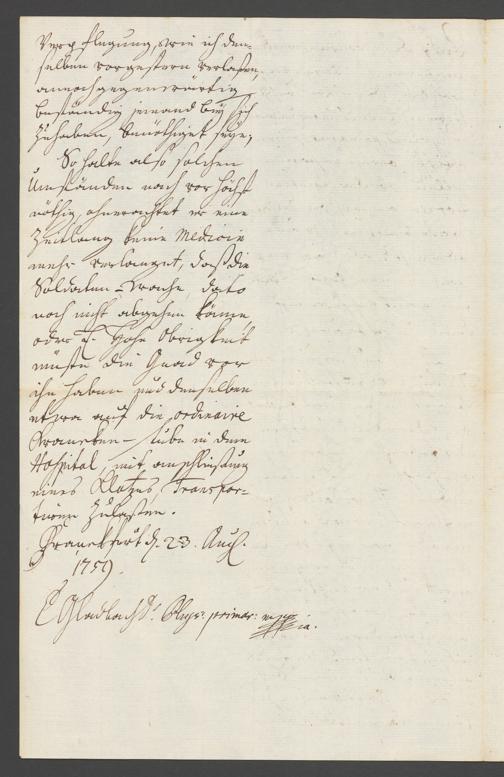 Verpflegung, wie ich den-
selben vorgestern verlaßen,
annoch gegenwärtig
beständig jemand bey sich
zu haben, benöthiget seye;
So halte also solchen
Umständen nach vor höchst
nöthig, ohnerachtet er eine
Zeitlang keine Medicin
mehr verlanget, daß die
Soldaten-Wache dato
noch nicht abgehen könne
oder E. Hohe Obrigkeit
müste die Gnad vor
ihn haben und denselben
etwa auf die ordinaire
Krancken-Stube in dem
Hospital, mit anschließung
eines Klotzes, transpor-
tiren zu laßen.
Franckfurt d. 23. Aug.
1759.
E Gladbach D. Phys: primar: mppria.